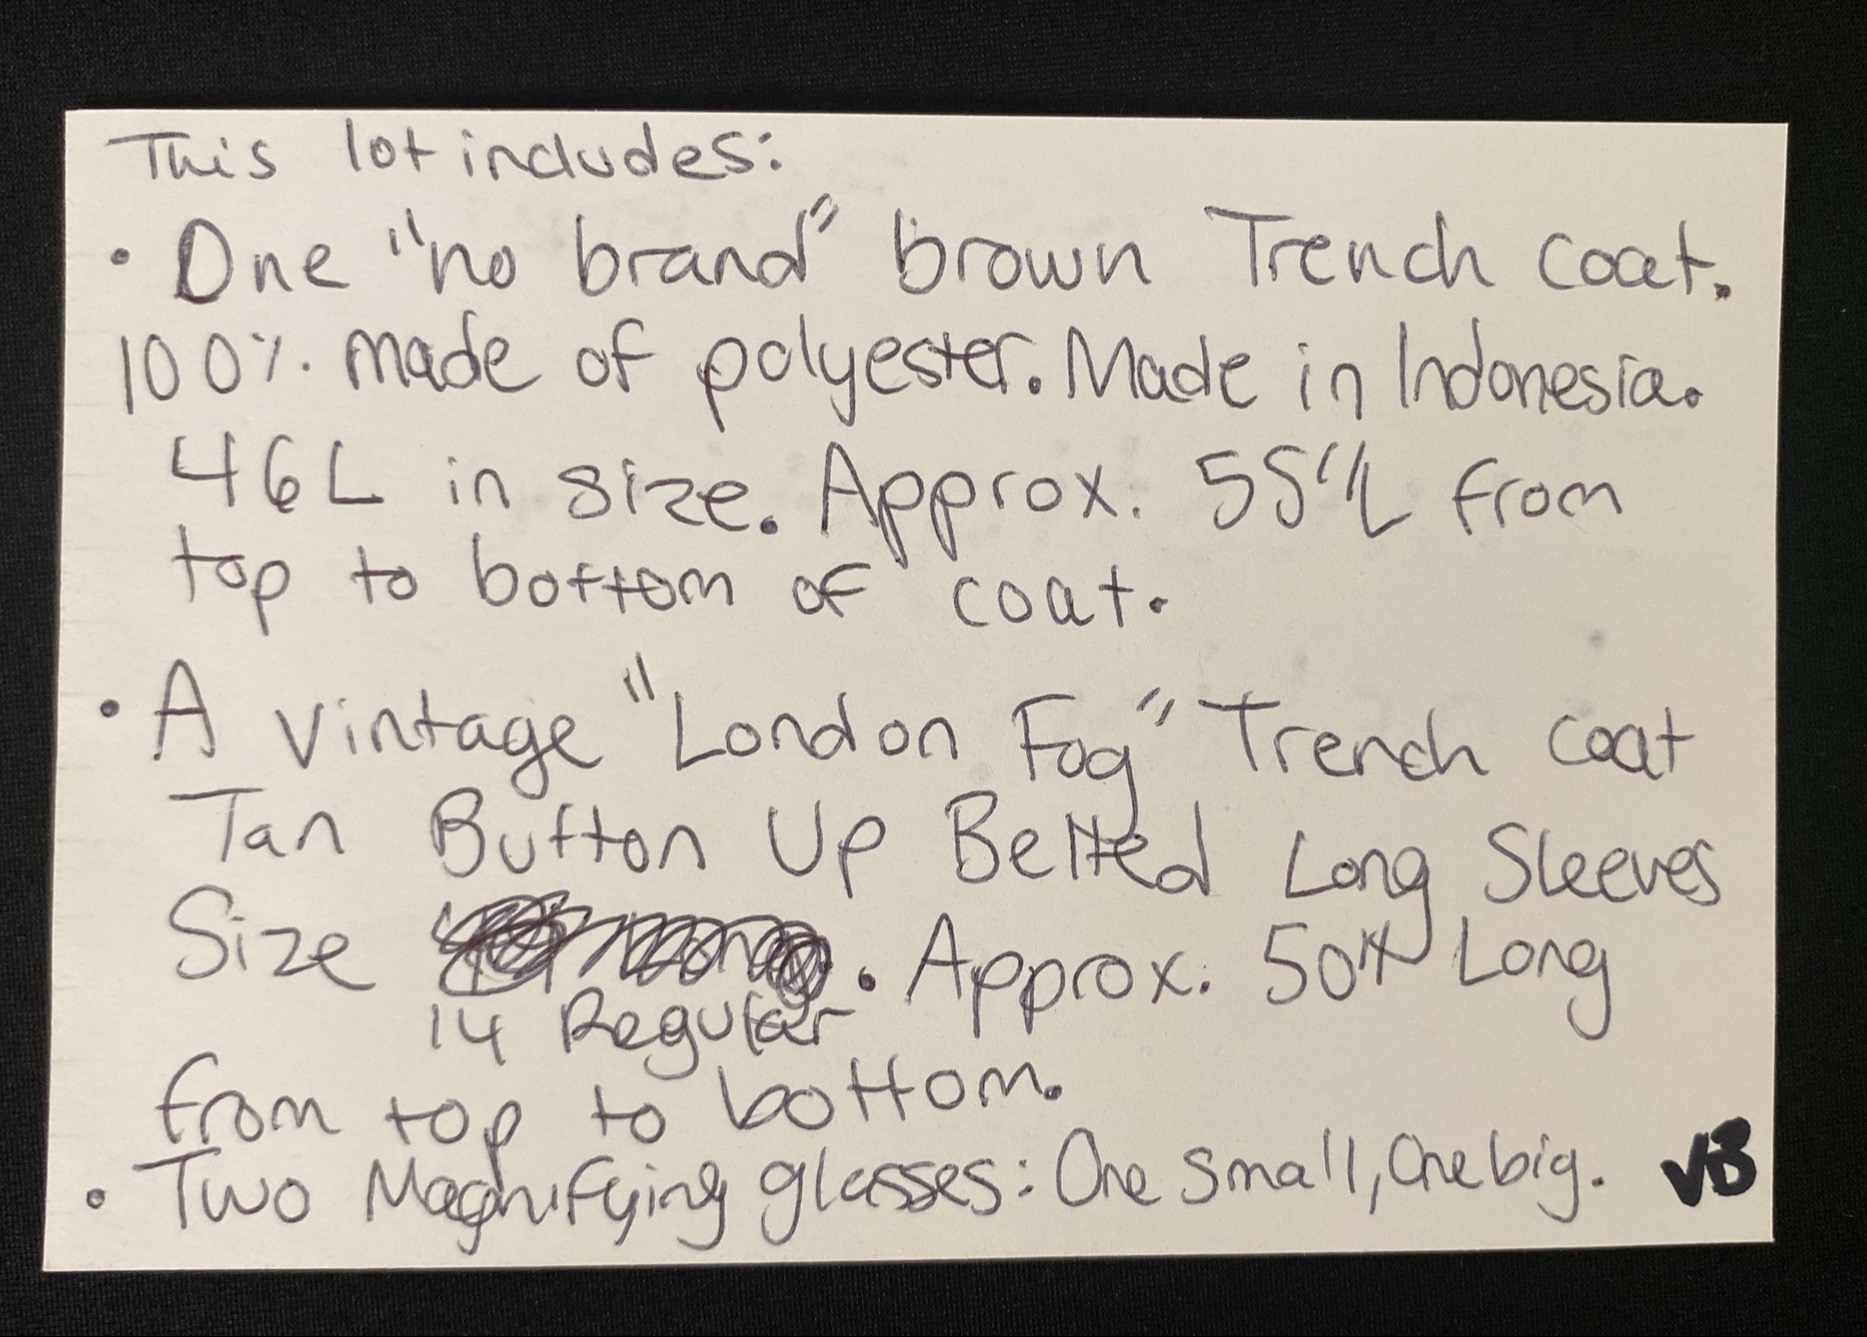 This lot includes:
• One "no brand" brown Trench coat.
100% made of polyester. Made in Indonesia.
46L in size. Approx. 55"L from
top to bottom of coat.
• A vintage "London Fog" Trench coat
Tan Button Up Belted Long Sleeves
Size . Approx. 50" Long
14 Regular
from top to bottom.
• Two Magnifying glasses: One small, One big. VB